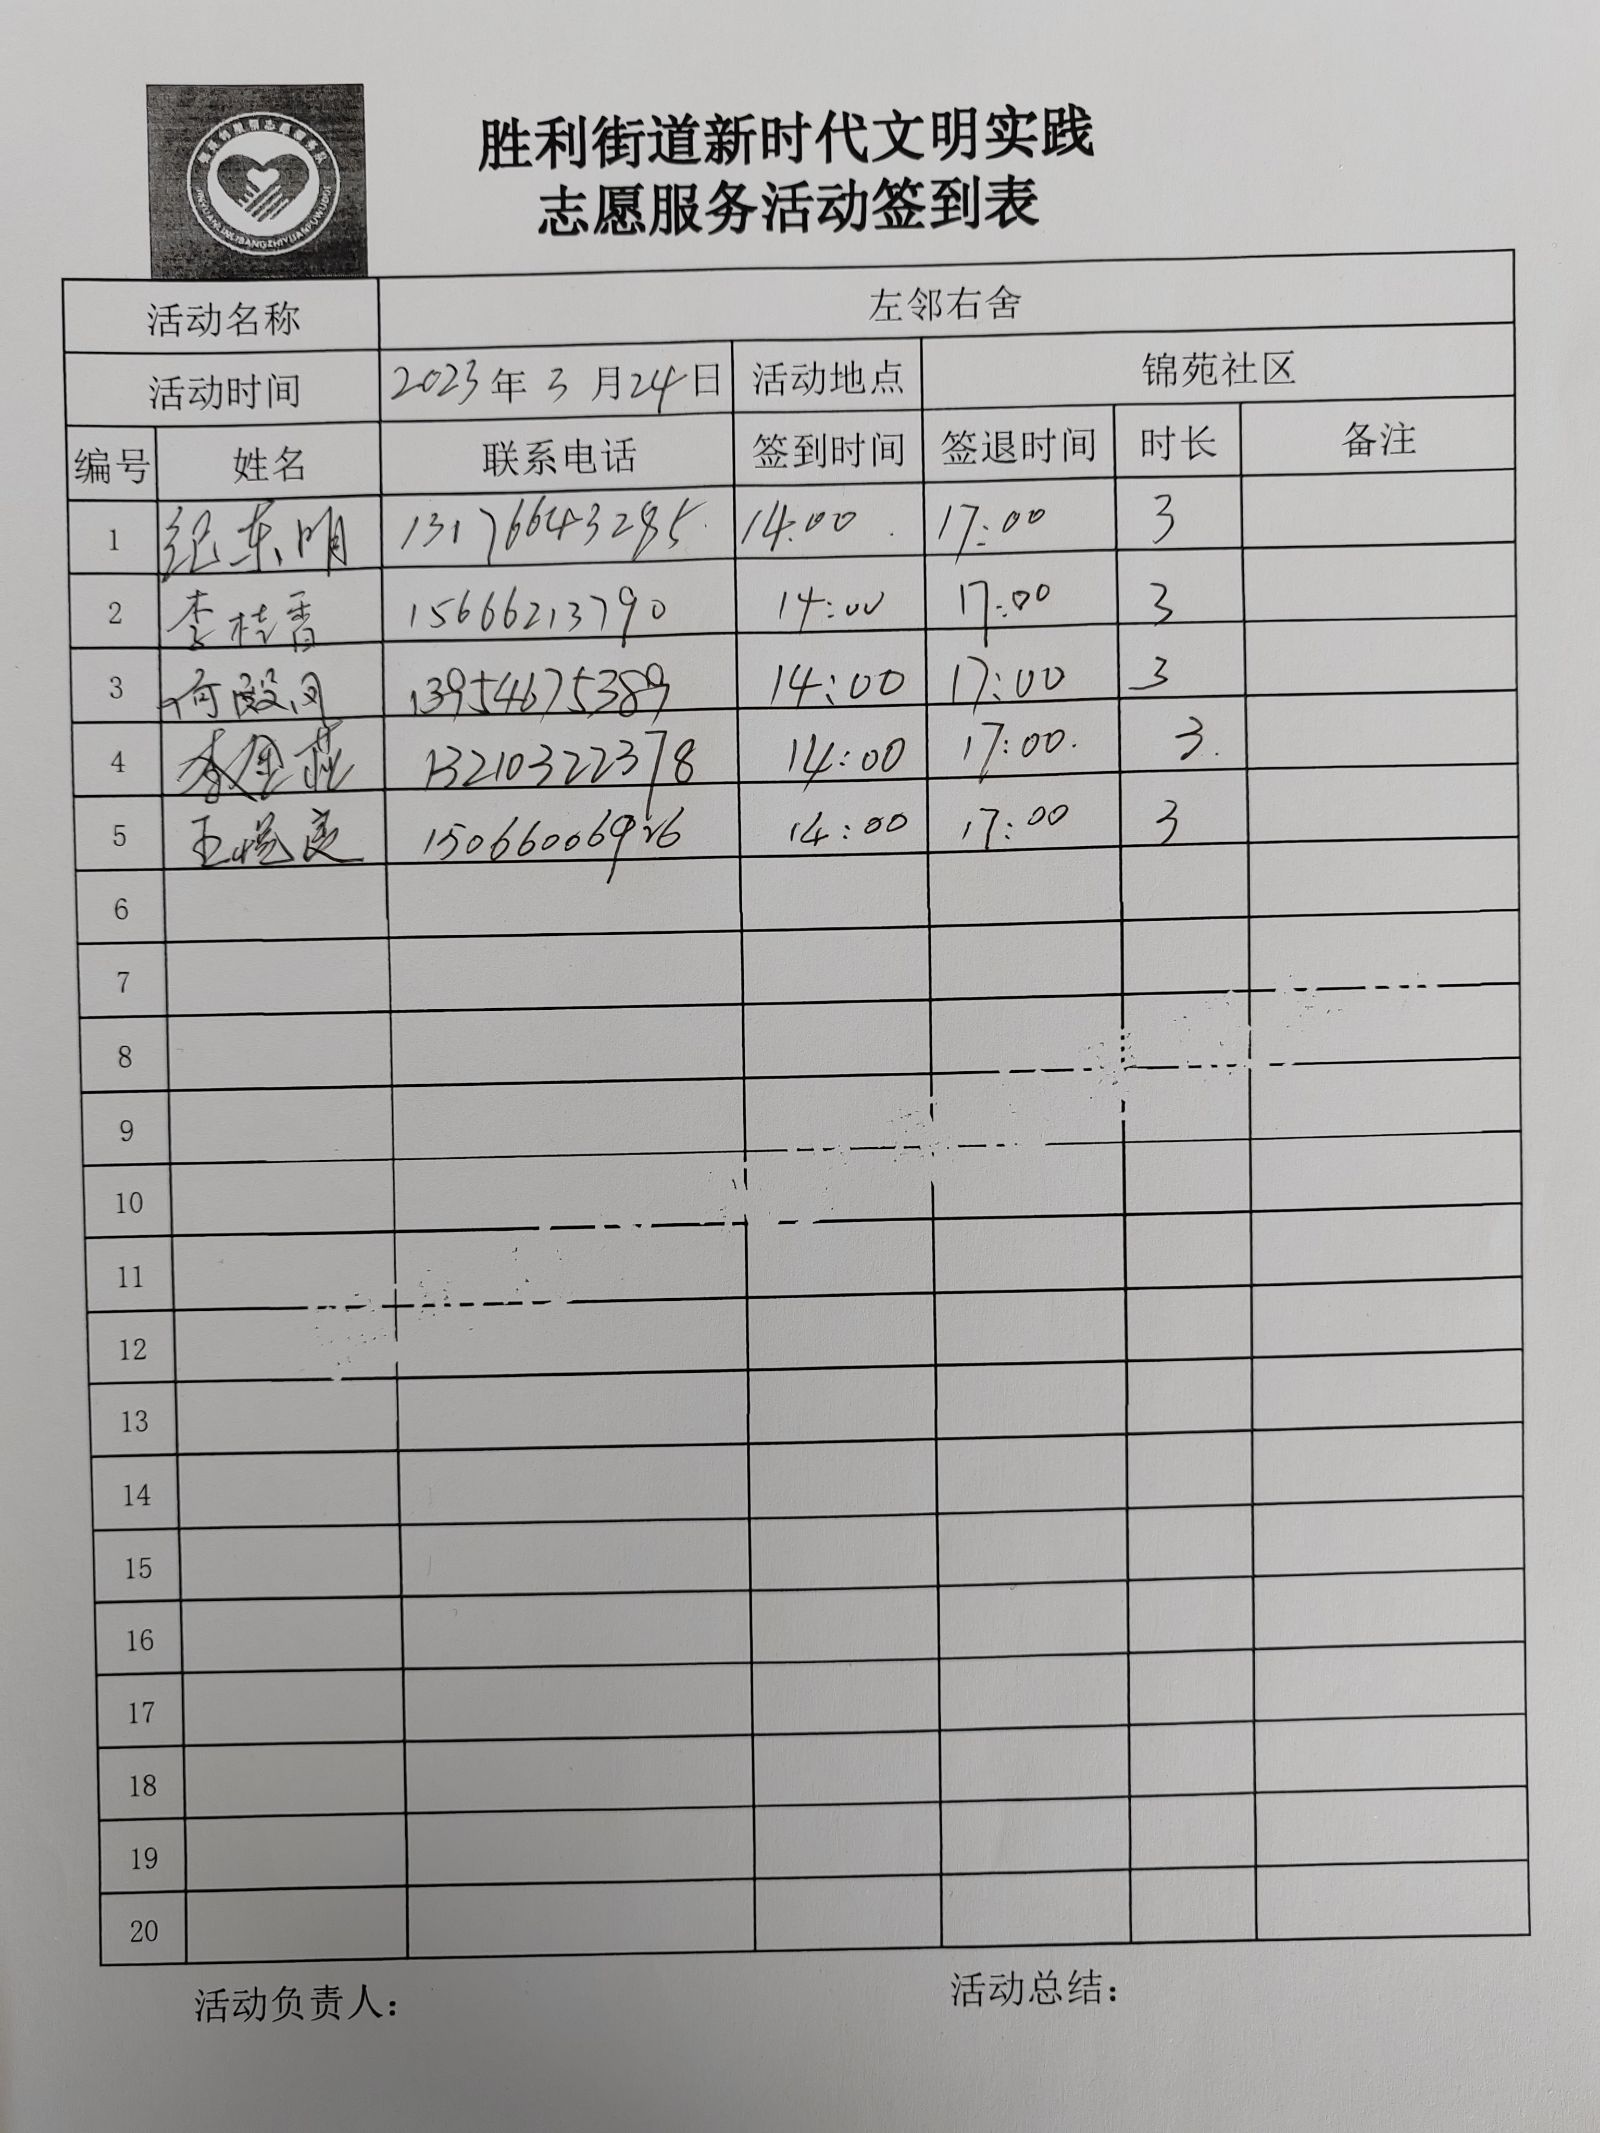 胜利街道新时代文明实践
志愿服务活动签到表
活动名称 左邻右舍
活动时间 2023年 3 月24日 活动地点 锦苑社区
编号 姓名 联系电话 签到时间 签退时间 时长 备注
1 纪东明 13176643285 14:00 17:00 3
2 李桂香 15666213790 14:00 17:00 3
3 何殿凤 13954675389 14:00 17:00 3
4 李金燕 13210322378 14:00 17:00. 3.
5 王 15066006926 14:00 17:00 3
6
7
8
9
10
11
12
13
14
15
16
17
18
19
20
活动负责人： 活动总结：